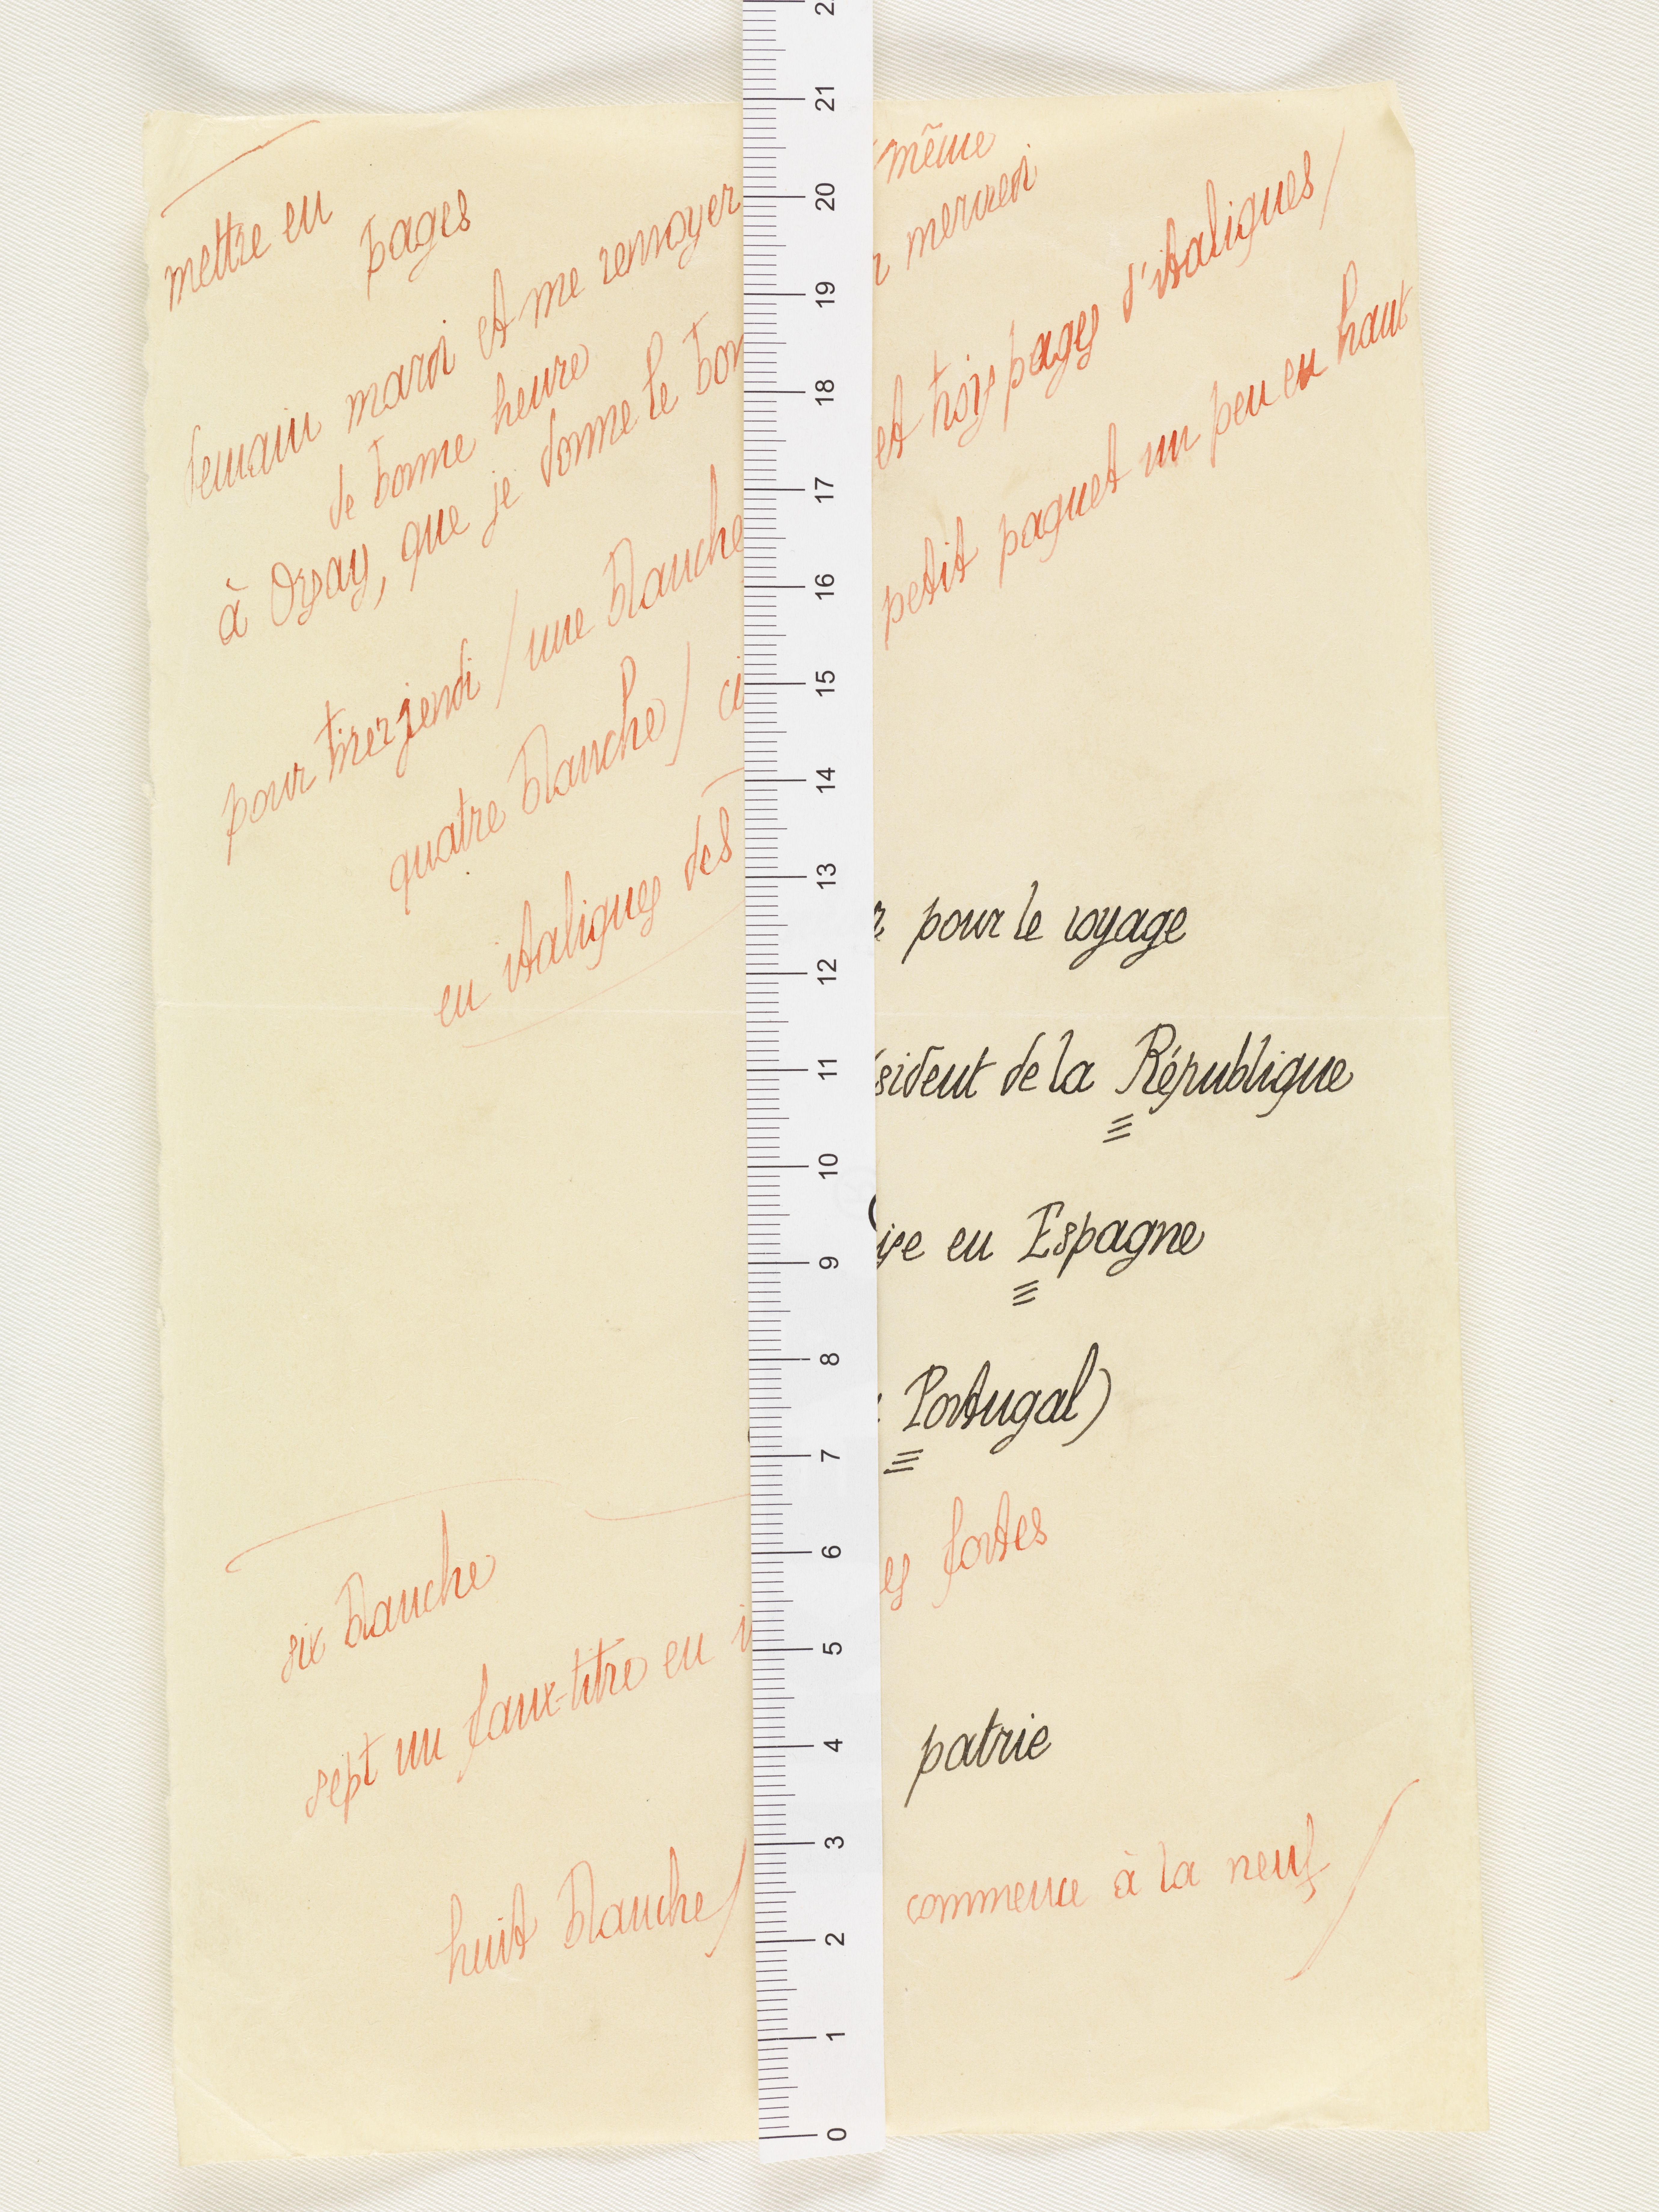 mettre en pages même
demain mardi et me renvoyer mercredi
de bonne heure
à Orsay, que je donne le bon
pour tirer jeudi / une blanche et trois pages d'italiques /
quatre blanche / petit paquet un peu en haut
en italiques des
pour le voyage
de la République
en Espagne
Portugal)
six blanche
sept un faux-titre en fortes
patrie
huit blanche / commence à la neuf /
21
20
19
18
17
16
15
14
13
12
11
10
9
8
7
6
5
4
3
2
1
0